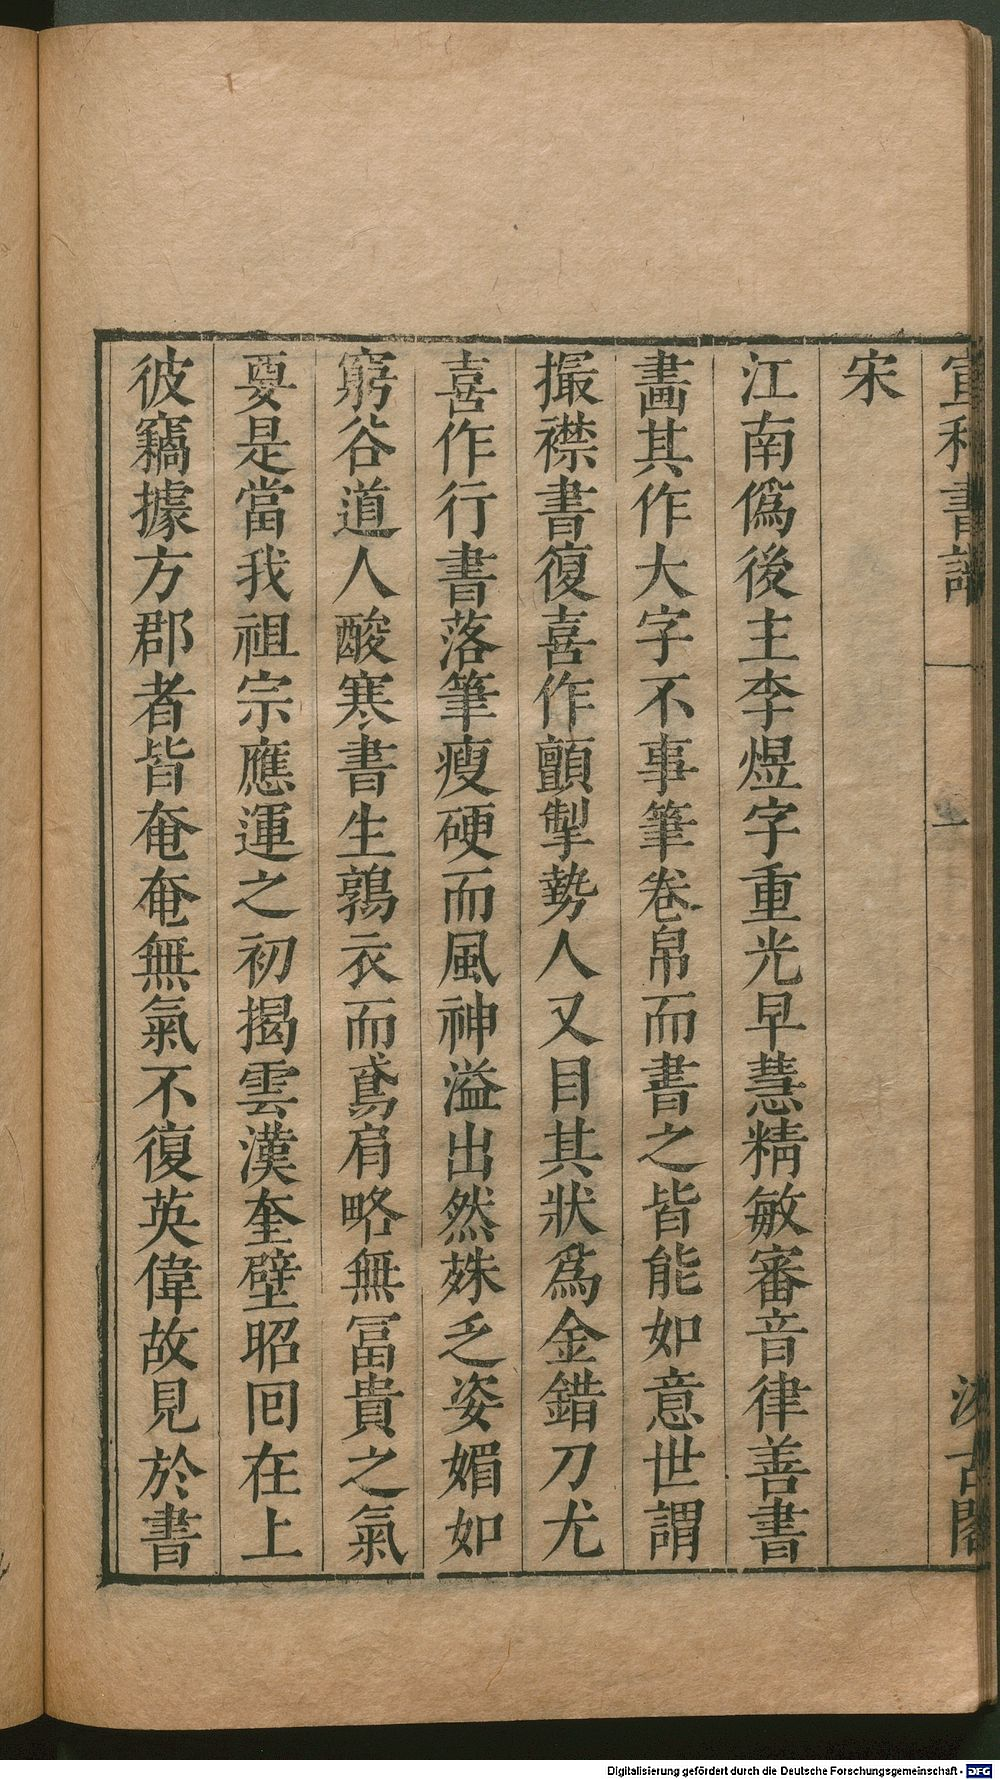 宣和書譜 一 汲古閣
宋
江南僞後主李煜字重光早慧精敏審音律善書
畫其作大字不事筆卷帛而書之皆能如意世謂
撮襟書復喜作顫掣勢人又目其狀爲金錯刀尤
喜作行書落筆瘦硬而風神溢出然殊乏姿媚如
窮谷道人酸寒書生鶉衣而鳶肩略無冨貴之氣
要是當我祖宗應運之初揭雲漢奎壁昭回在上
彼竊據方郡者皆奄奄無氣不復英偉故見於書
Digitalisierung gefördert durch die Deutsche Forschungsgemeinschaft - DFG